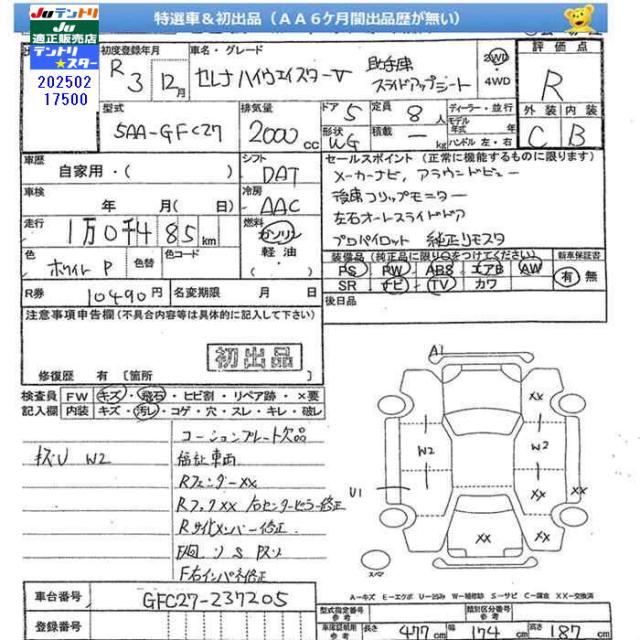 特選車＆初出品（ＡＡ６ケ月間出品歴が無い）
JUテントリ
JU
適正販売店
テントリ
スター
202502
17500
初度登録年月
R 3 年 12月
車名・グレード
セレナ ハイウェイスターV
助手席
スライドアップシート
2WD
4WD
評価点
R
外装 内装
C B
型式
5AA-GFC27
排気量
2000 cc
ドア 5
形状 WG
定員 8 人
積載 ー kg
ディーラー・並行
モデル
年式 年
ハンドル 左・右
車歴
自家用・( )
シフト
DAT
車検
年 月( 日)
冷房
AAC
走行
1万0千485 km
燃料
ガソリン
軽油
・( )
色
ホワイトP
色替
色コード
R券 10490円
名変期限 月 日
セールスポイント（正常に機能するものに限ります）
メーカーナビ、アラウンドビュー
後席フリップモニター
左右オートスライドドア
プロパイロット 純正リモスタ
装備品（純正品に限り○をつけてください）
PS PW ABS エアB AW
SR ナビ TV カワ
新車保証書
有 無
後日品
注意事項申告欄（不具合内容等は具体的に記入して下さい）
初出品
修復歴 有〔箇所
検査員 FW キズ・飛石・ヒビ割・リペア跡・×要
記入欄 内装 キズ・汚レ・コゲ・穴・スレ・キレ・破レ
コーションプレート欠品
キズU W2
福祉車両
RフェンダーXX
RフックXX 右センターピラー修正
Rサイドメンバー修正
F右インパネ修正
A1
XX
W2
W2
U1
XX
XX
XX
XX
スペア
A－キズ E－エクボ U－凹み W－補修跡 S－サビ C－腐食 XX－交換済
車台番号 GFC27-237205
登録番号
型式指定番号
参考
類別区分番号
参考
車検証記載
参考
長さ 477 cm
幅 174 cm
高さ 187 cm